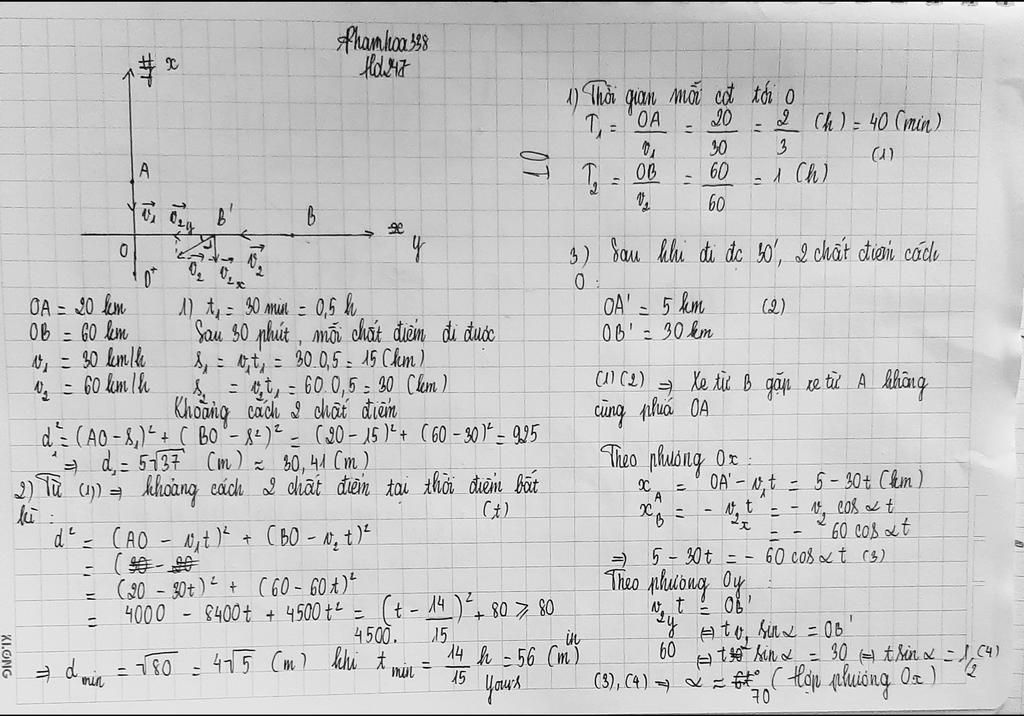 Phamhoa338
Hd247
x
A
v₁ v₂y B' B
y
O
v₂ v₂x v₂
O⁺
OA = 20 km
OB = 60 km
v₁ = 30 km/h
v₂ = 60 km/h
1) t₁ = 30 min = 0,5 h
Sau 30 phút, mỗi chất điểm đi được
s₁ = v₁t₁ = 30.0,5 = 15 (km)
s₂ = v₂t₁ = 60.0,5 = 30 (km)
Khoảng cách 2 chất điểm
d₁² = (AO - s₁)² + (BO - s²)² = (20 - 15)² + (60 - 30)² = 925
⇒ d₁ = 5√37 (m) ≈ 30,41 (m)
2) Từ (1)) ⇒ khoảng cách 2 chất điểm tại thời điểm bất
kì : (t)
d² = (AO - v₁t)² + (BO - v₂t)²
= (
= (20 - 30t)² + (60 - 60t)²
= 4000 - 8400t + 4500t² = 4500. (t - 14/15)² + 80 ≥ 80
⇒ d min = √80 = 4√5 (m) khi t min = 14/15 h = 56 (min)
yours
10
1) Thời gian mỗi cđ tới O
T₁ = OA/v₁ = 20/30 = 2/3 (h) = 40 (min)
(1)
T₂ = OB/v₂ = 60/60 = 1 (h)
3) Sau khi đi đc 30', 2 chất điểm cách
O :
OA' = 5 km (2)
OB' = 30 km
(1)(2) ⇒ Xe từ B gặp xe từ A không
cùng phía OA
Theo phương Ox :
x_A = OA' - v₁t = 5 - 30t (km)
x_B = - v₂x t = - v₂ cos α t
= - 60 cos α t
⇒ 5 - 30t = - 60 cos α t (3)
Theo phương Oy :
v₂y t = OB'
⇔ t v₂ sin α = OB'
⇔ t 60 sin α = 30 ⇔ t sin α = 1/2 (4)
(3), (4) ⇒ α ≈ 70° (Hợp phương Ox)
KLONG